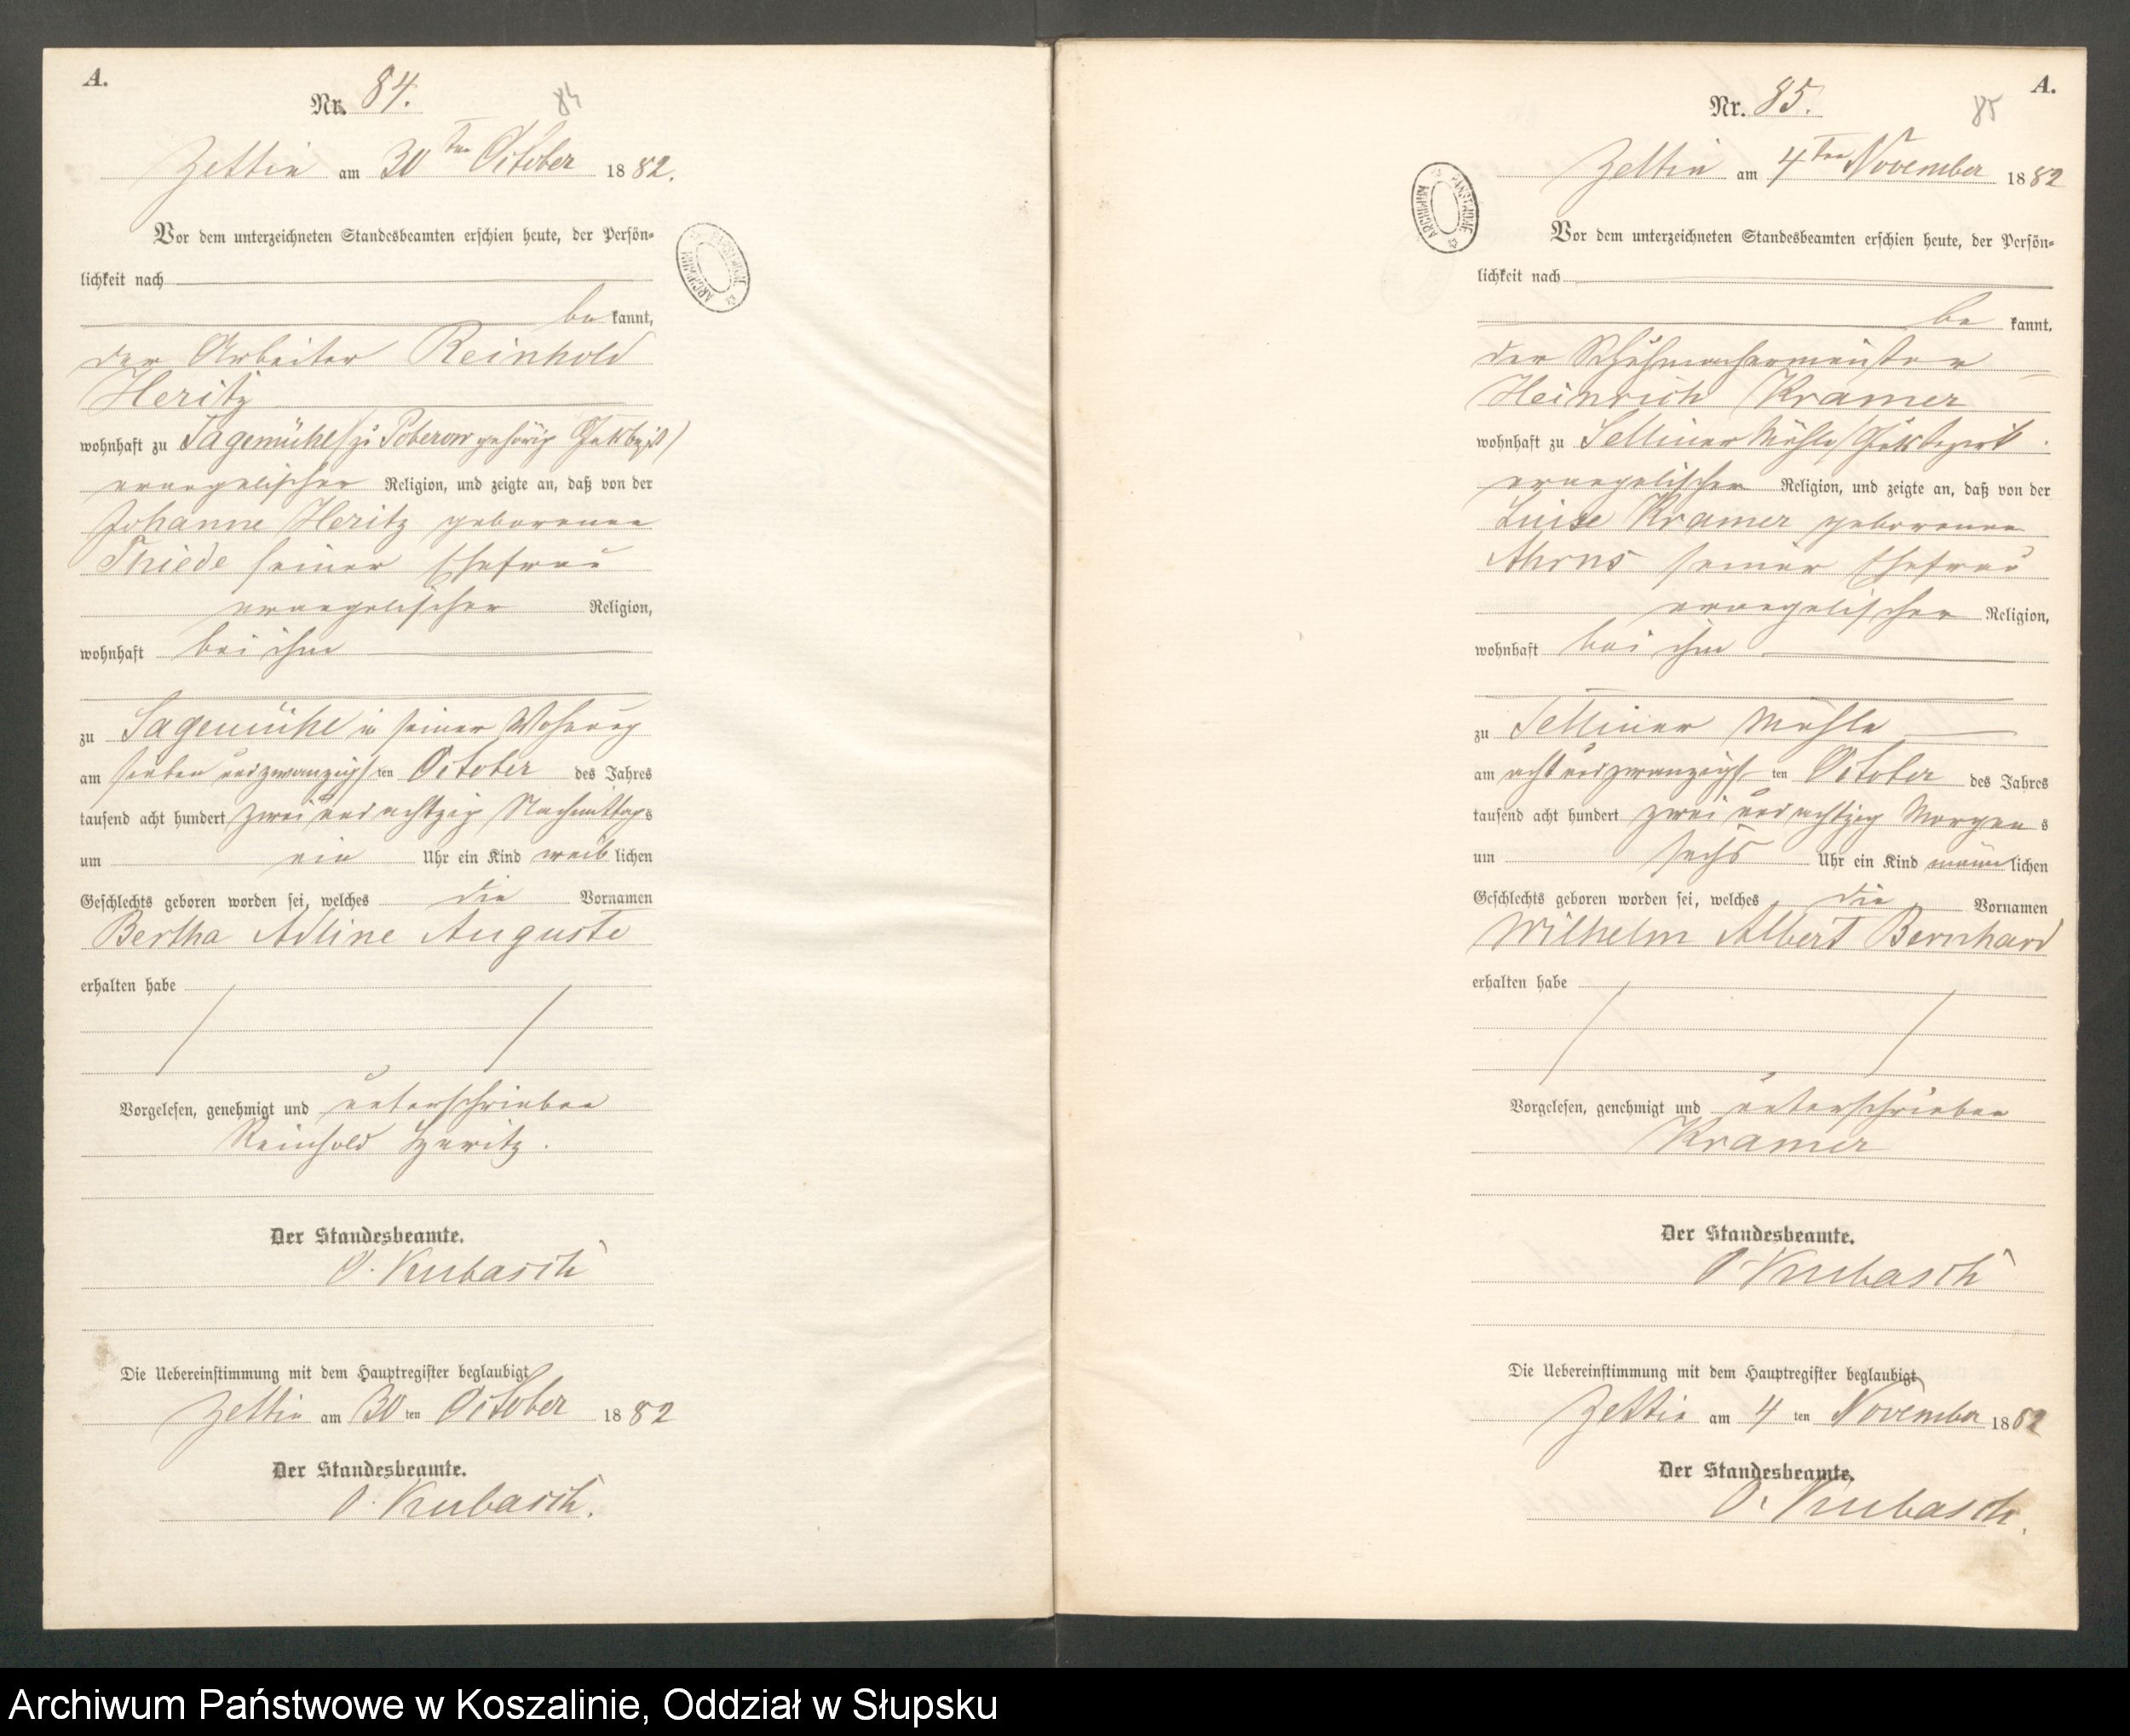 A.
Nr. 84.
84
Zettin am 30ten October 1882.
Vor dem unterzeichneten Standesbeamten erschien heute, der Persön-
lichkeit nach
be kannt,
der Arbeiter Reinhold
Heritz
wohnhaft zu Sagemühl (zu Poberow gehörig Gutsbezirk)
evangelischer Religion, und zeigte an, daß von der
Johanne Heritz geborenen
Thiede seiner Ehefrau
evangelischer Religion,
wohnhaft bei ihm
zu Sagemühl in seiner Wohnung
am sieben und zwanzigsten October des Jahres
tausend acht hundert zwei und achtzig Nachmittags
um ein Uhr ein Kind weiblichen
Geschlechts geboren worden sei, welches die Vornamen
Bertha Adline Auguste
erhalten habe
Vorgelesen, genehmigt und unterschrieben
Reinhold Heritz.
Der Standesbeamte.
O. Kubasch
Die Uebereinstimmung mit dem Hauptregister beglaubigt
Zettin am 30ten October 1882
Der Standesbeamte.
O. Kubasch.
A.
Nr. 85.
85
Zettin am 4ten November 1882
Vor dem unterzeichneten Standesbeamten erschien heute, der Persön-
lichkeit nach
be kannt,
der Schuhmachermeister
Heinrich Kramer
wohnhaft zu Selliner Mühle (Gutsbezirk
evangelischer Religion, und zeigte an, daß von der
Luise Kramer geborenen
Ahrns seiner Ehefrau
evangelischer Religion,
wohnhaft bei ihm
zu Selliner Mühle
am acht und zwanzigsten October des Jahres
tausend acht hundert zwei und achtzig Morgens
um sechs Uhr ein Kind männlichen
Geschlechts geboren worden sei, welches die Vornamen
Wilhelm Albert Bernhard
erhalten habe
Vorgelesen, genehmigt und unterschrieben
Kramer
Der Standesbeamte.
O. Kubasch
Die Uebereinstimmung mit dem Hauptregister beglaubigt
Zettin am 4ten November 1882
Der Standesbeamte.
O. Kubasch.
Archiwum Państwowe w Koszalinie, Oddział w Słupsku